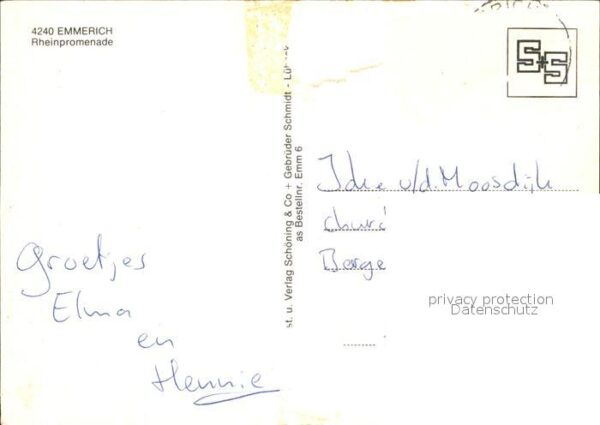 4240 EMMERICH
Rheinpromenade
S+S
st. u. Verlag Schöning & Co + Gebrüder Schmidt - Lü
as Bestellnr. Emm 6
v/d. Moosdijk
Berge
privacy protection
Datenschutz
Groetjes
Elma
en
Hennie